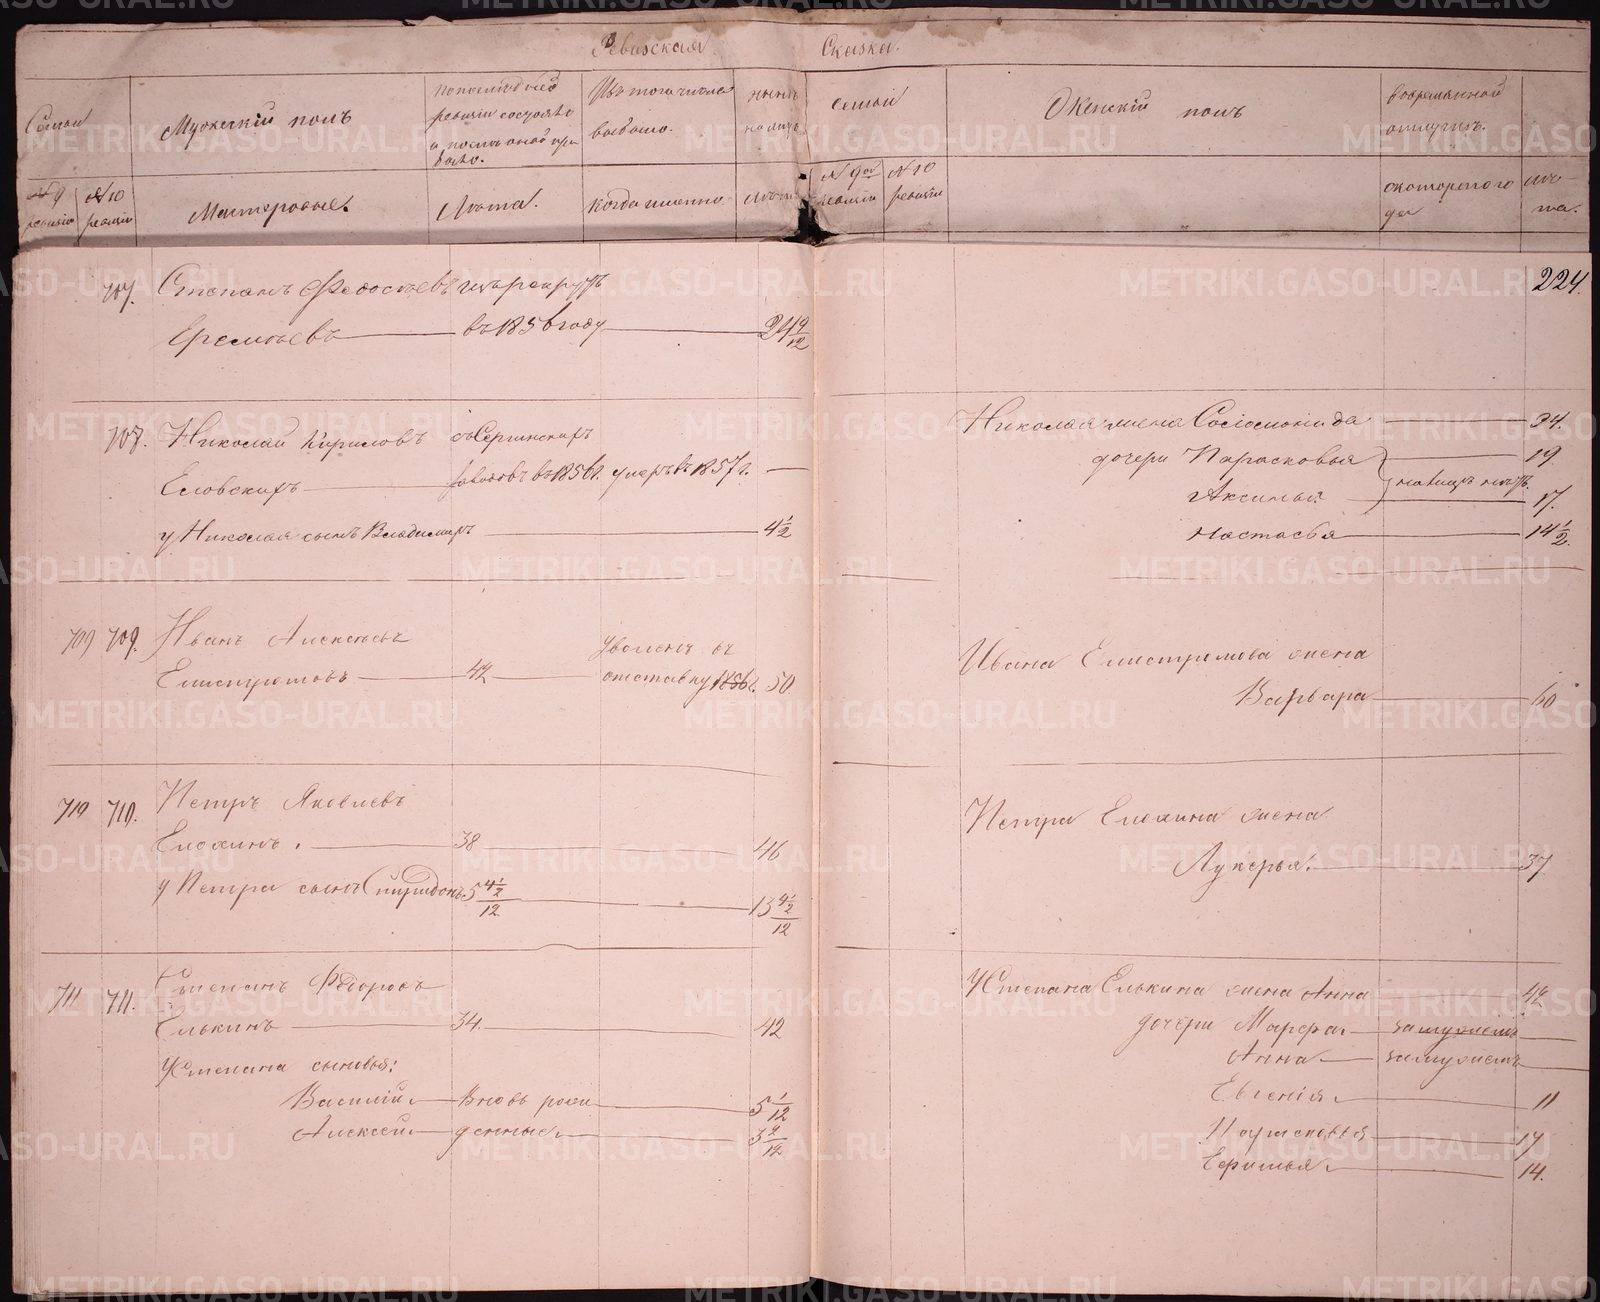 Ревизская Сказка.
Семьи
Мужескій полъ
по последней
ревизіи состояло
и после оной при
было.
Изъ того числа
выбыло.
ныне
на лицо
семьи
Женскій полъ
во временной
отлучке.
№ 9 ревизіи
№ 10 ревизіи
Мастеровые.
Лета.
когда именно
лета
№ 9ой ревизіи
№ 10 ревизіи
съ котораго го
да
ле-
та.
224.
707. Степанъ Федосеевъ изъ рекрутъ
Еремеевъ въ 1856 году 24 9/12
708. Николай Кириловъ съ Сергинскихъ
Еловскихъ заводовъ въ 1856 г. умеръ въ 1857 г.
у Николая сынъ Владимиръ 4 1/2
Николая жена 34.
дочери Парасковья 19
Аксинья 17.
Настасья 14 1/2.
709 709. Иванъ Алексеевъ
Елистратовъ 42 уволенъ въ
отставку 1856 г. 50
Ивана Елистратова жена
Варвара 60
710 710. Петръ Яковлевъ
Елохинъ. 38 46
у Петра сынъ Спиридонъ 5 4 1/2/12 13 4 1/2/12
Петра Елохина жена
Лукерья. 37
711 711. Степанъ Федоровъ
Елькинъ 34. 42
У Степана сыновья:
Василій вновь рож 5 1/12
Алексей денные 3 2/12
У Степана Елькина жена Анна 42
дочери Марфа замужемъ
Анна замужемъ
Евгенія 11
Парасковья 17
14.
METRIKI.GASO-URAL.RU